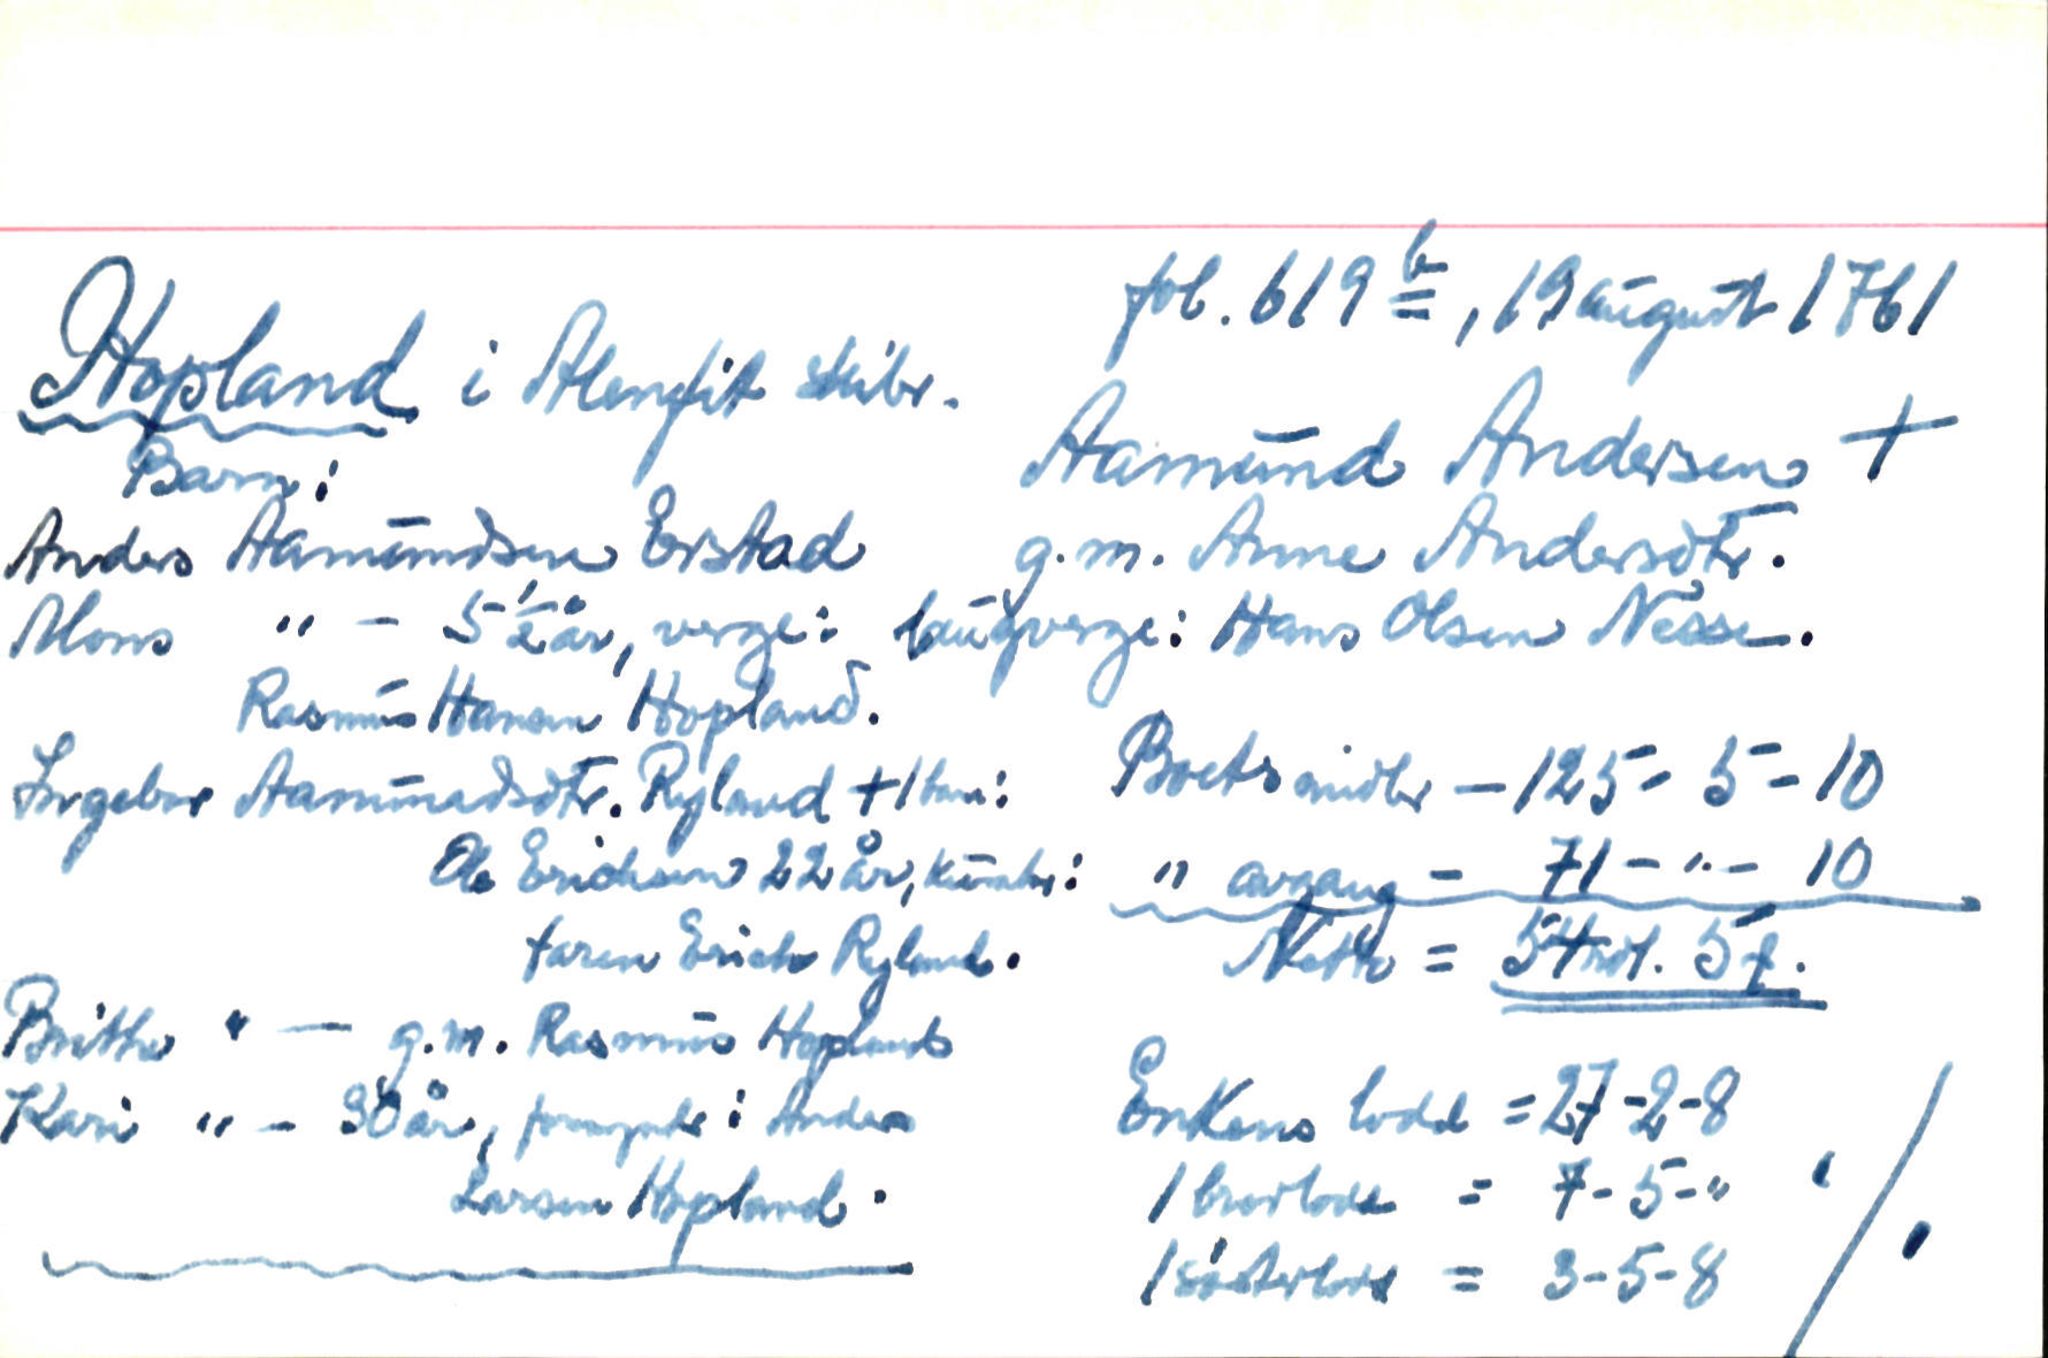 fol. 619 b, 19 august 1761
Hopland i Alenfit skibr.
Aamund Andersen +
g.m. Anne Andersdtr.
laugverge: Hans Olsen Nesse.
Barn:
Anders Aamundsen Erstad
Mons " - 5 1/2 år, verge:
Rasmus Hansen Hopland.
Ingebor Aamundsdtr. Ryland + 1 barn:
Ole Erichsen 22 år, kurator:
faren Erich Ryland.
Brithe " - g.m. Rasmus Hopland
Kari " - 30 år, formynder: Anders
Larsen Hopland.
Boets midler - 125 - 5 - 10
" avgang - 71 - " - 10
Netto = 54 rdl. 5 ƒ.
Enkens lodd = 27-2-8
1 brorlodd = 7-5-"
1 søsterlodd = 3-5-8